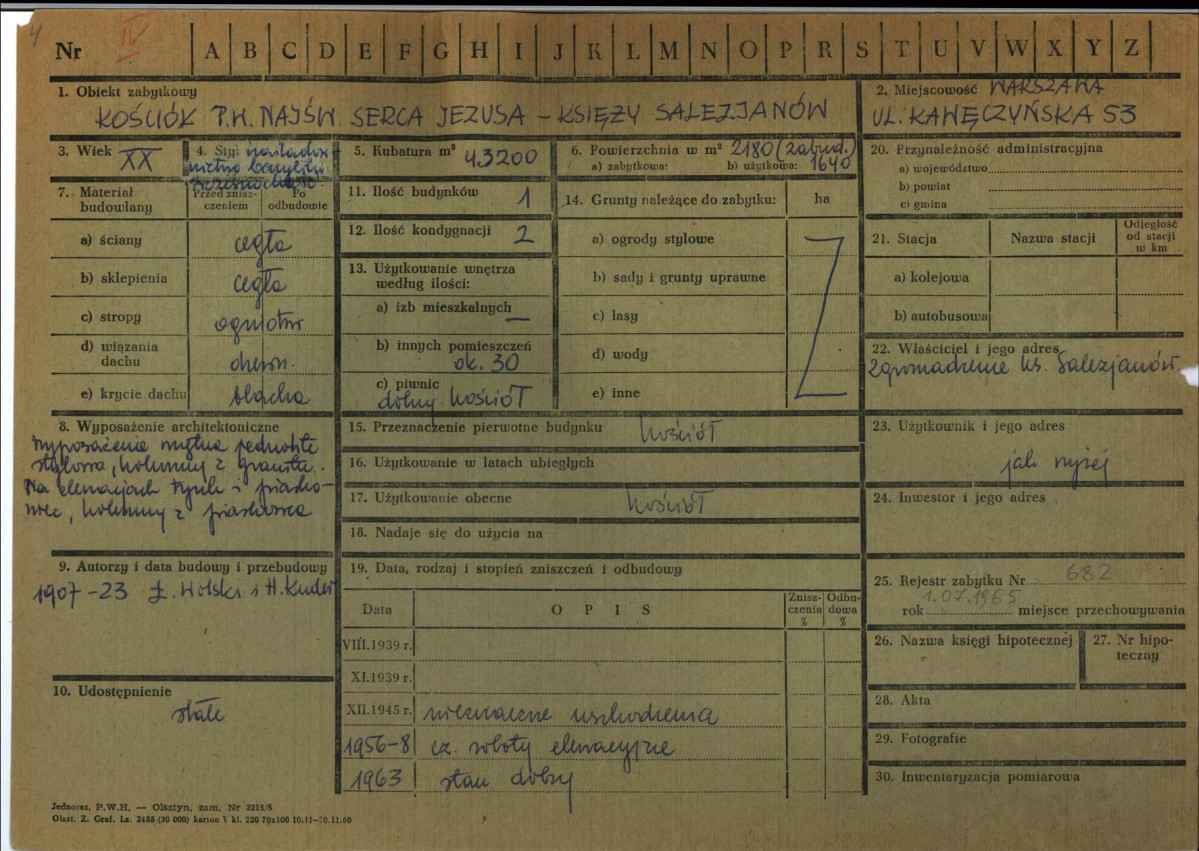 4
Nr IV A B C D E F G H I J K L M N O P R S T U V W X Y Z
1. Obiekt zabytkowy
KOŚCIÓŁ P.W. NAJŚW. SERCA JEZUSA – KSIĘŻY SALEZJANÓW
2. Miejscowość WARSZAWA
UL. KAWĘCZYŃSKA 53
3. Wiek XX
4. Styl naśladow-
nictwo bazyliki
Przed znisz-
czeniem
Po
odbudowie
5. Kubatura m³ 43200
6. Powierzchnia w m² 2180 (zabud.)
a) zabytkowa: b) użytkowa: 1640
7. Materiał
budowlany
a) ściany cegła
b) sklepienia cegła
c) stropy ogniotrw
d) wiązania
dachu drewn.
e) krycie dachu blacha
8. Wyposażenie architektoniczne
Wyposażenie wnętrza jednolite
stylowo, kolumny z granitu.
Na elewacjach tynk i piasko-
wiec, kolumny z piaskowca
9. Autorzy i data budowy i przebudowy
1907–23 Ł. Wolski i H. Kuder
10. Udostępnienie
stałe
11. Ilość budynków 1
12. Ilość kondygnacji 2
13. Użytkowanie wnętrza
według ilości:
a) izb mieszkalnych —
b) innych pomieszczeń
ok. 30
c) piwnic
dolny kościół
14. Grunty należące do zabytku: ha
a) ogrody stylowe
b) sady i grunty uprawne
c) lasy
d) wody
e) inne
15. Przeznaczenie pierwotne budynku kościół
16. Użytkowanie w latach ubiegłych
17. Użytkowanie obecne kościół
18. Nadaje się do użycia na
19. Data, rodzaj i stopień zniszczeń i odbudowy
Data O P I S
Znisz-
czenia
%
Odbu-
dowa
%
VIII.1939 r.
XI.1939 r.
XII.1945 r. nieznaczne uszkodzenia
1956–8 cz. roboty elewacyjne
1963 stan dobry
20. Przynależność administracyjna
a) województwo
b) powiat
c) gmina
21. Stacja Nazwa stacji
Odległość
od stacji
w km
a) kolejowa
b) autobusowa
22. Właściciel i jego adres
Zgromadzenie ks. Salezjanów
23. Użytkownik i jego adres
jak wyżej
24. Inwestor i jego adres
25. Rejestr zabytku Nr 682
rok 1.07.1965 miejsce przechowywania
26. Nazwa księgi hipotecznej
27. Nr hipo-
teczny
28. Akta
29. Fotografie
30. Inwentaryzacja pomiarowa
Jednoraz. P.W.H. — Olsztyn, zam. Nr 3215/S
Olszt. Z. Graf. Lz. 2485 (30 000) karton V kl. 220 70x100 10.11–30.11.60